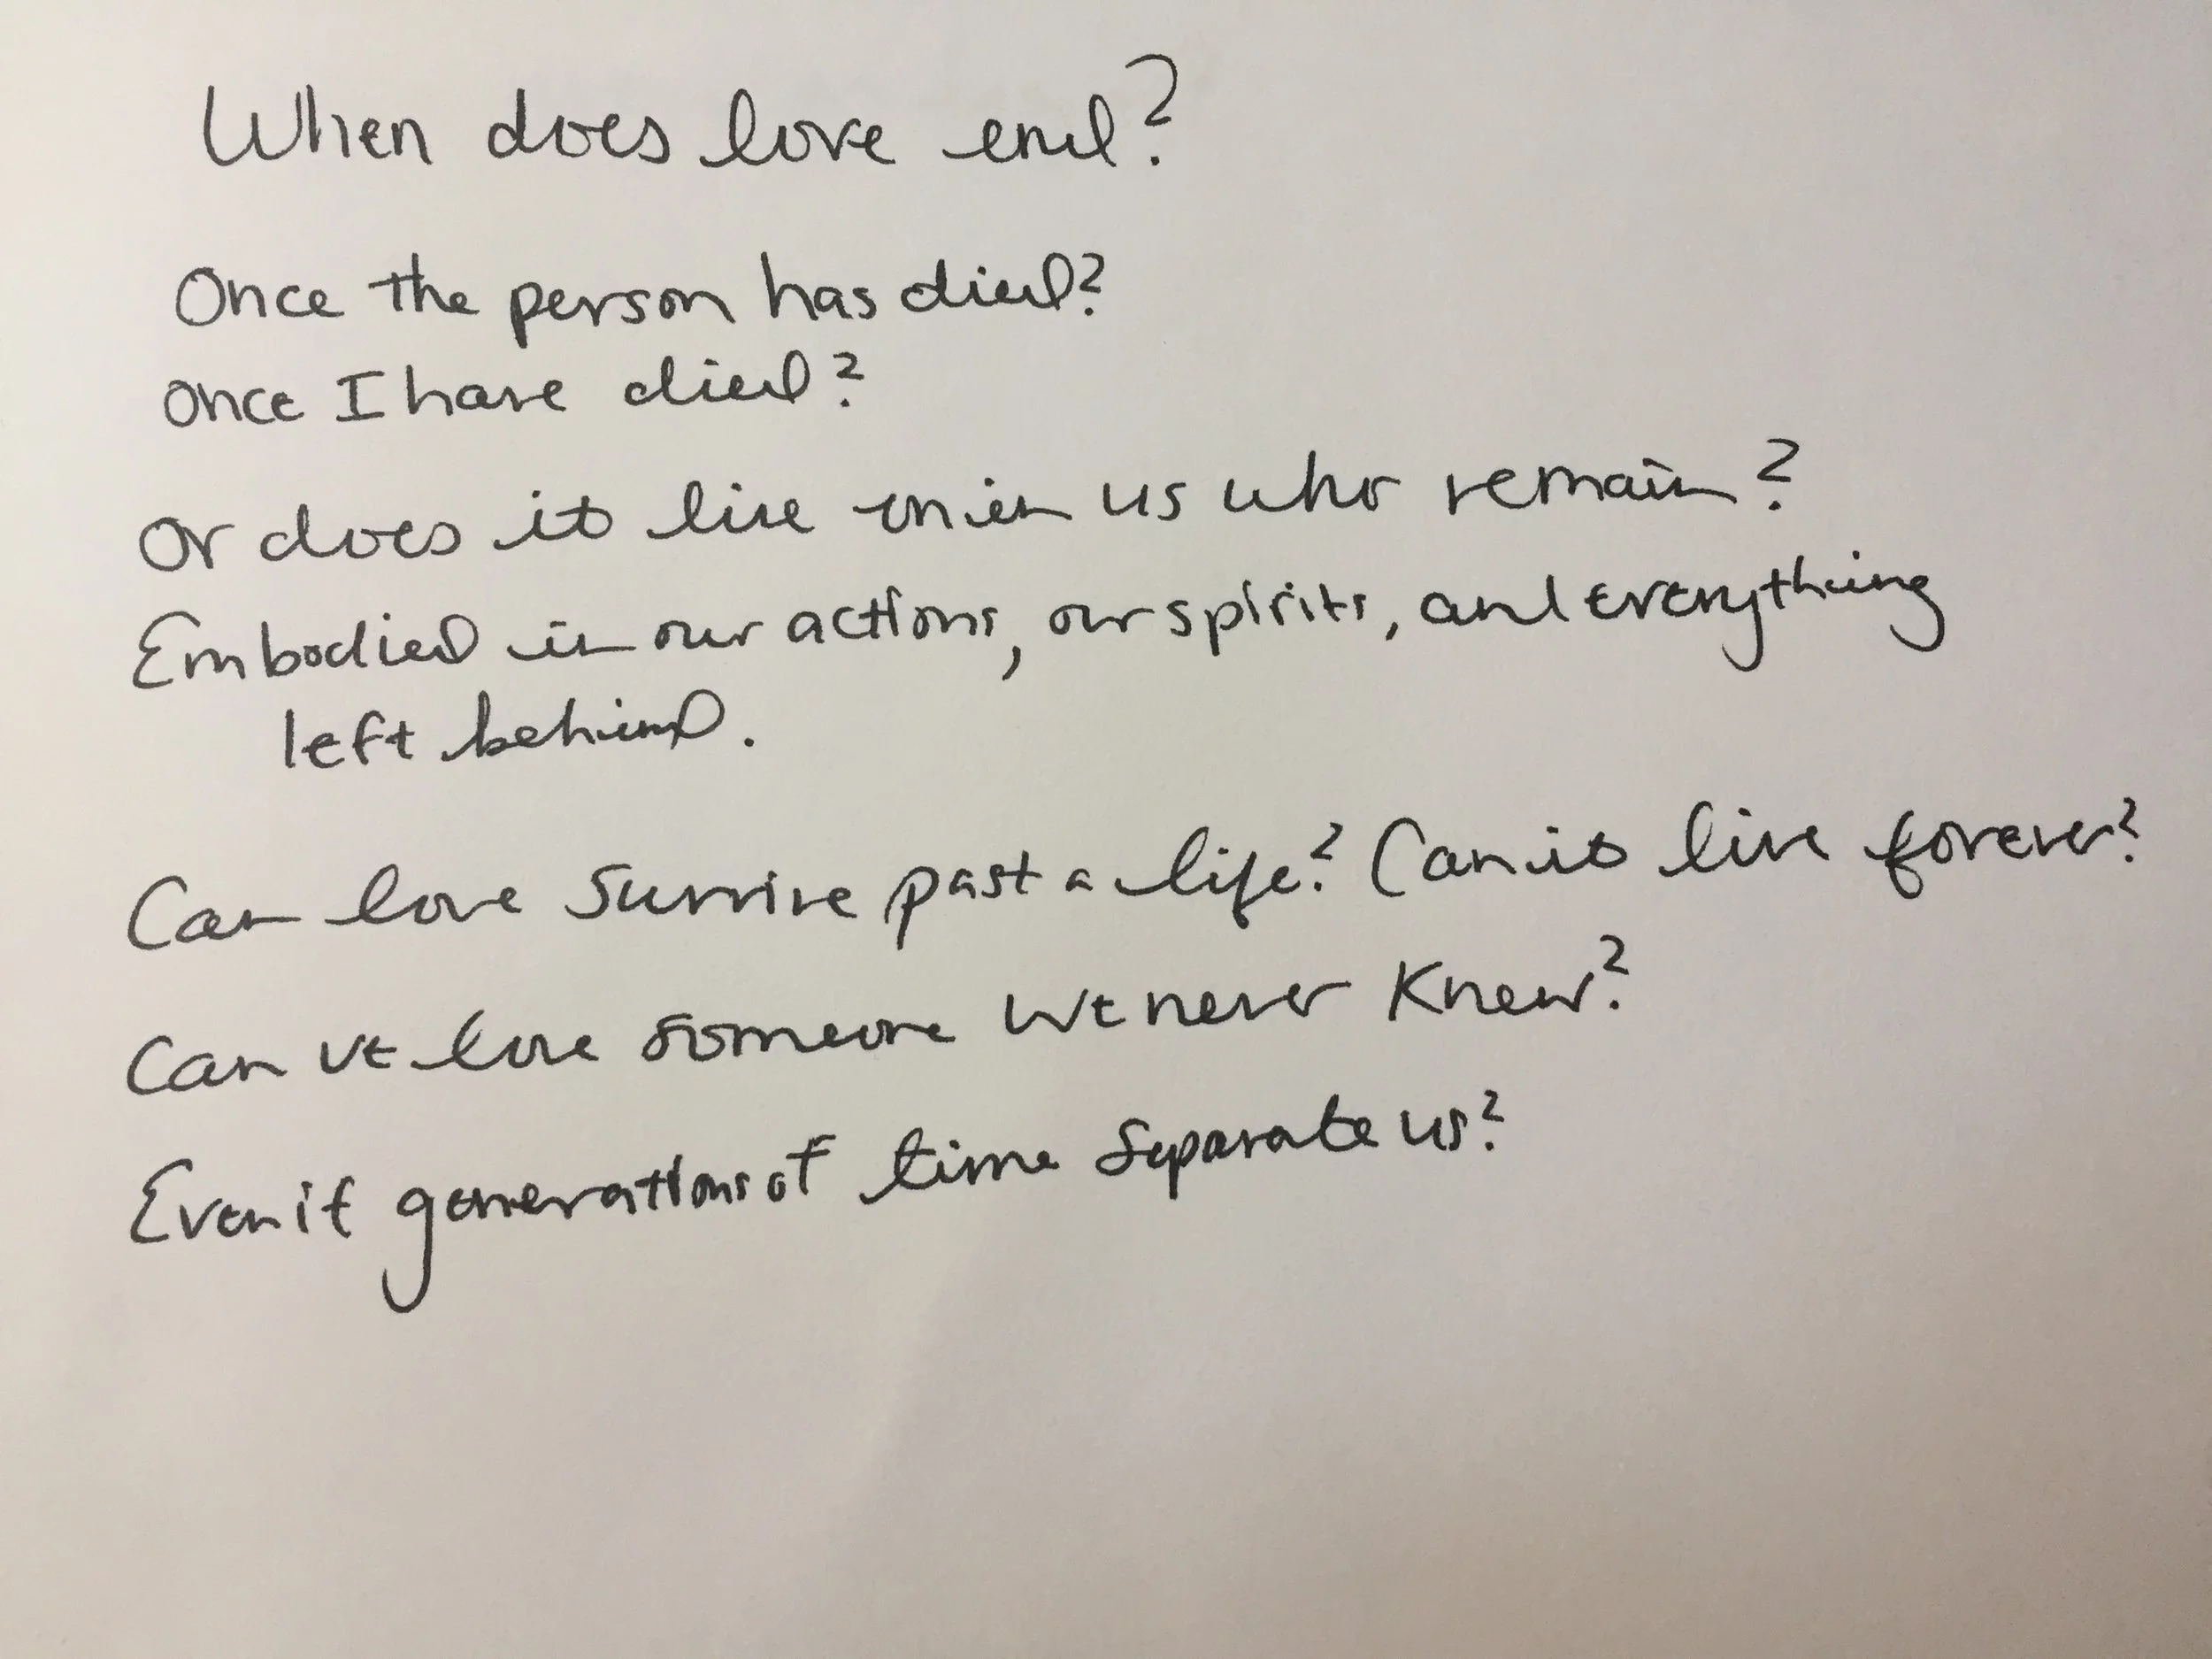 When does love end?
Once the person has died?
Once I have died?
Or does it live on in us who remain?
Embodied in our actions, our spirits, and everything
left behind.
Can love survive past a life? Can it live forever?
Can we love someone we never knew?
Even if generations of time separate us?